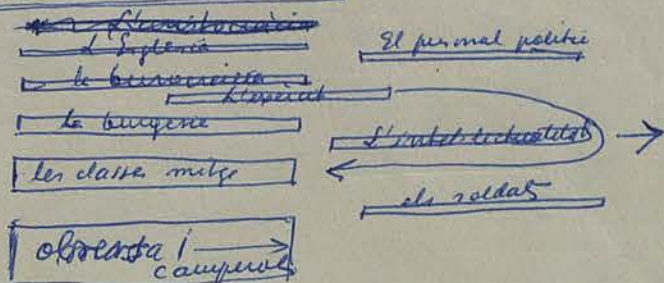 L'aristocràcia
L'Església
la burocràcia
L'exèrcit
La burgesia
les classes mitge
obrers i
camperols
El personal polític
L'intel·lectualitat
els soldats